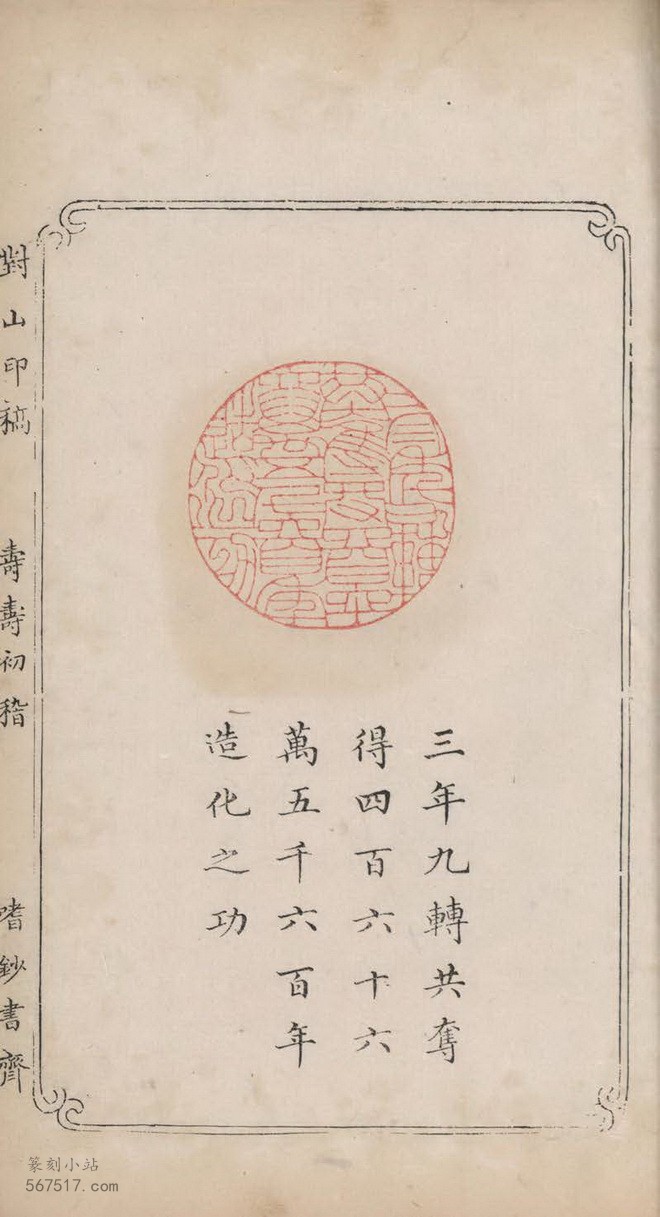 三年九轉共奪
得四百六十六
萬五千六百年
造化之功
對山印稿
壽壽初稽
嗜鈔書齊
篆刻小站
567517.com